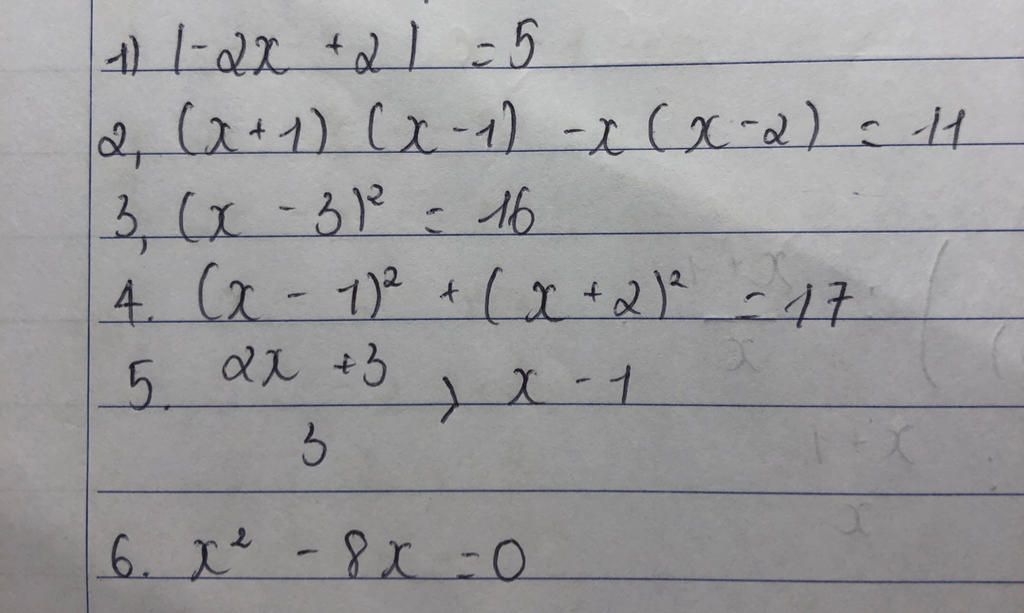 1) |-2x + 2| = 5
2, (x + 1) (x - 1) - x (x - 2) = 11
3, (x - 3)² = 16
4. (x - 1)² + (x + 2)² = 17
5. (2x + 3)/3 > x - 1
6. x² - 8x = 0